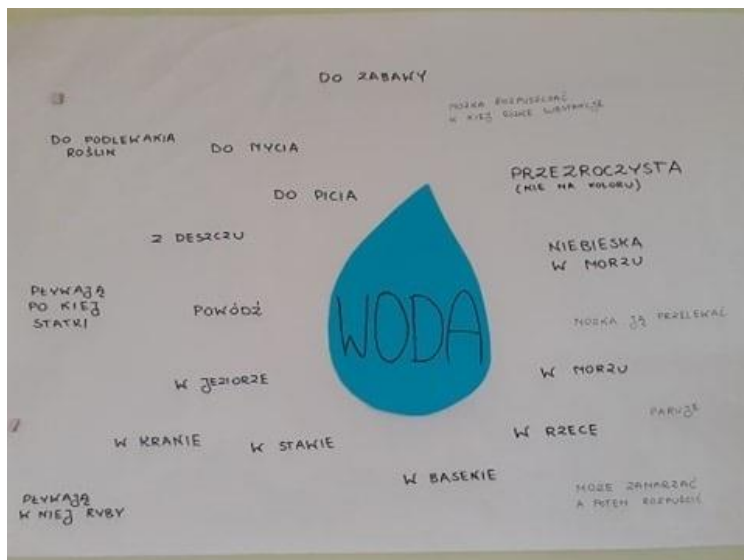 DO ZABAWY
MOŻNA ROZPUSZCZAĆ
W NIEJ RÓŻNE SUBSTANCJE
DO PODLEWANIA
ROŚLIN
DO MYCIA
PRZEZROCZYSTA
(NIE MA KOLORU)
DO PICIA
Z DESZCZU
NIEBIESKA
W MORZU
PŁYWAJĄ
PO NIEJ
STATKI
POWÓDŹ
WODA
MOŻNA JĄ PRZELEWAĆ
W JEZIORZE
W MORZU
PARUJE
W KRANIE
W STAWIE
W RZECE
W BASENIE
PŁYWAJĄ
W NIEJ RYBY
MOŻE ZAMARZAĆ
A POTEM ROZPUŚCIĆ